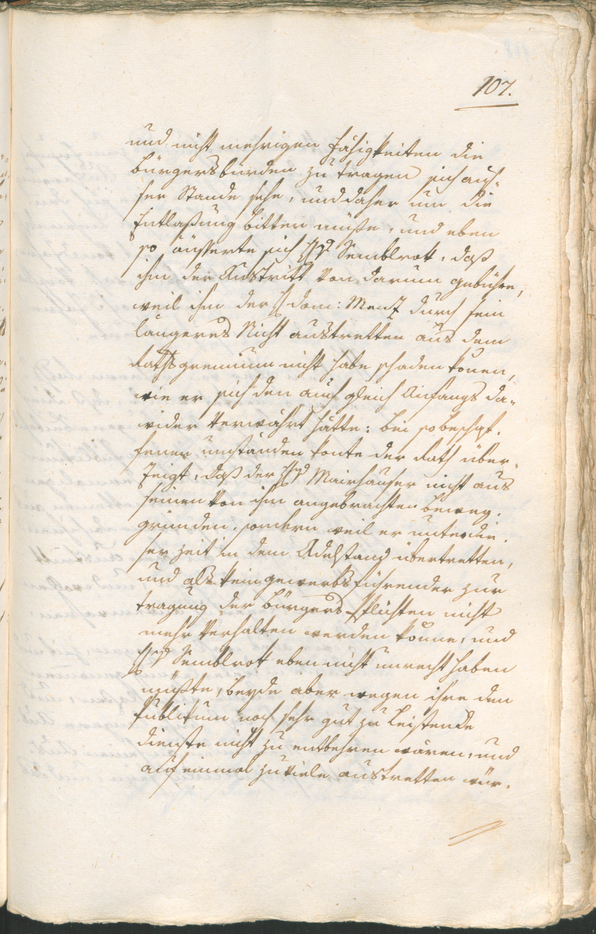 107.
und nicht mehrigen Fähigkeiten die
Bürgersbürden zu tragen sich aus
ser Stande sehe, und daher um die
Entlaßung bitten müste, und eben
so äusserte sich Hr. Semblrok, daß
ihm der Austritt von darum gebühre,
weil ihm der H. Dom: Menz durch sein
längeres Nicht austretten aus dem
Rathsgremium nicht habe schaden können,
wie er sich den auch gleich Anfangs da-
wider verwahrt hätte: bei so beschaf-
fenen umständen konte der Rath über-
zeigt, daß der Hr. Mairhauser nicht aus
seinen von ihm angebrachten beweg-
gründen, sondern weil er unter die-
ser zeit in dem Adelstand übertretten,
und als kein gewerbsführender zur
tragung der bürgers-Pflichten nicht
mehr verhalten werden könne, und
Hr. Semblrok eben nicht unrecht haben
müßte, beyde aber wegen ihre dem
Publikum noch sehr gut zu leistende
dienste nicht zu entbehren wären, und
auf einmal zu viele austretten wür-